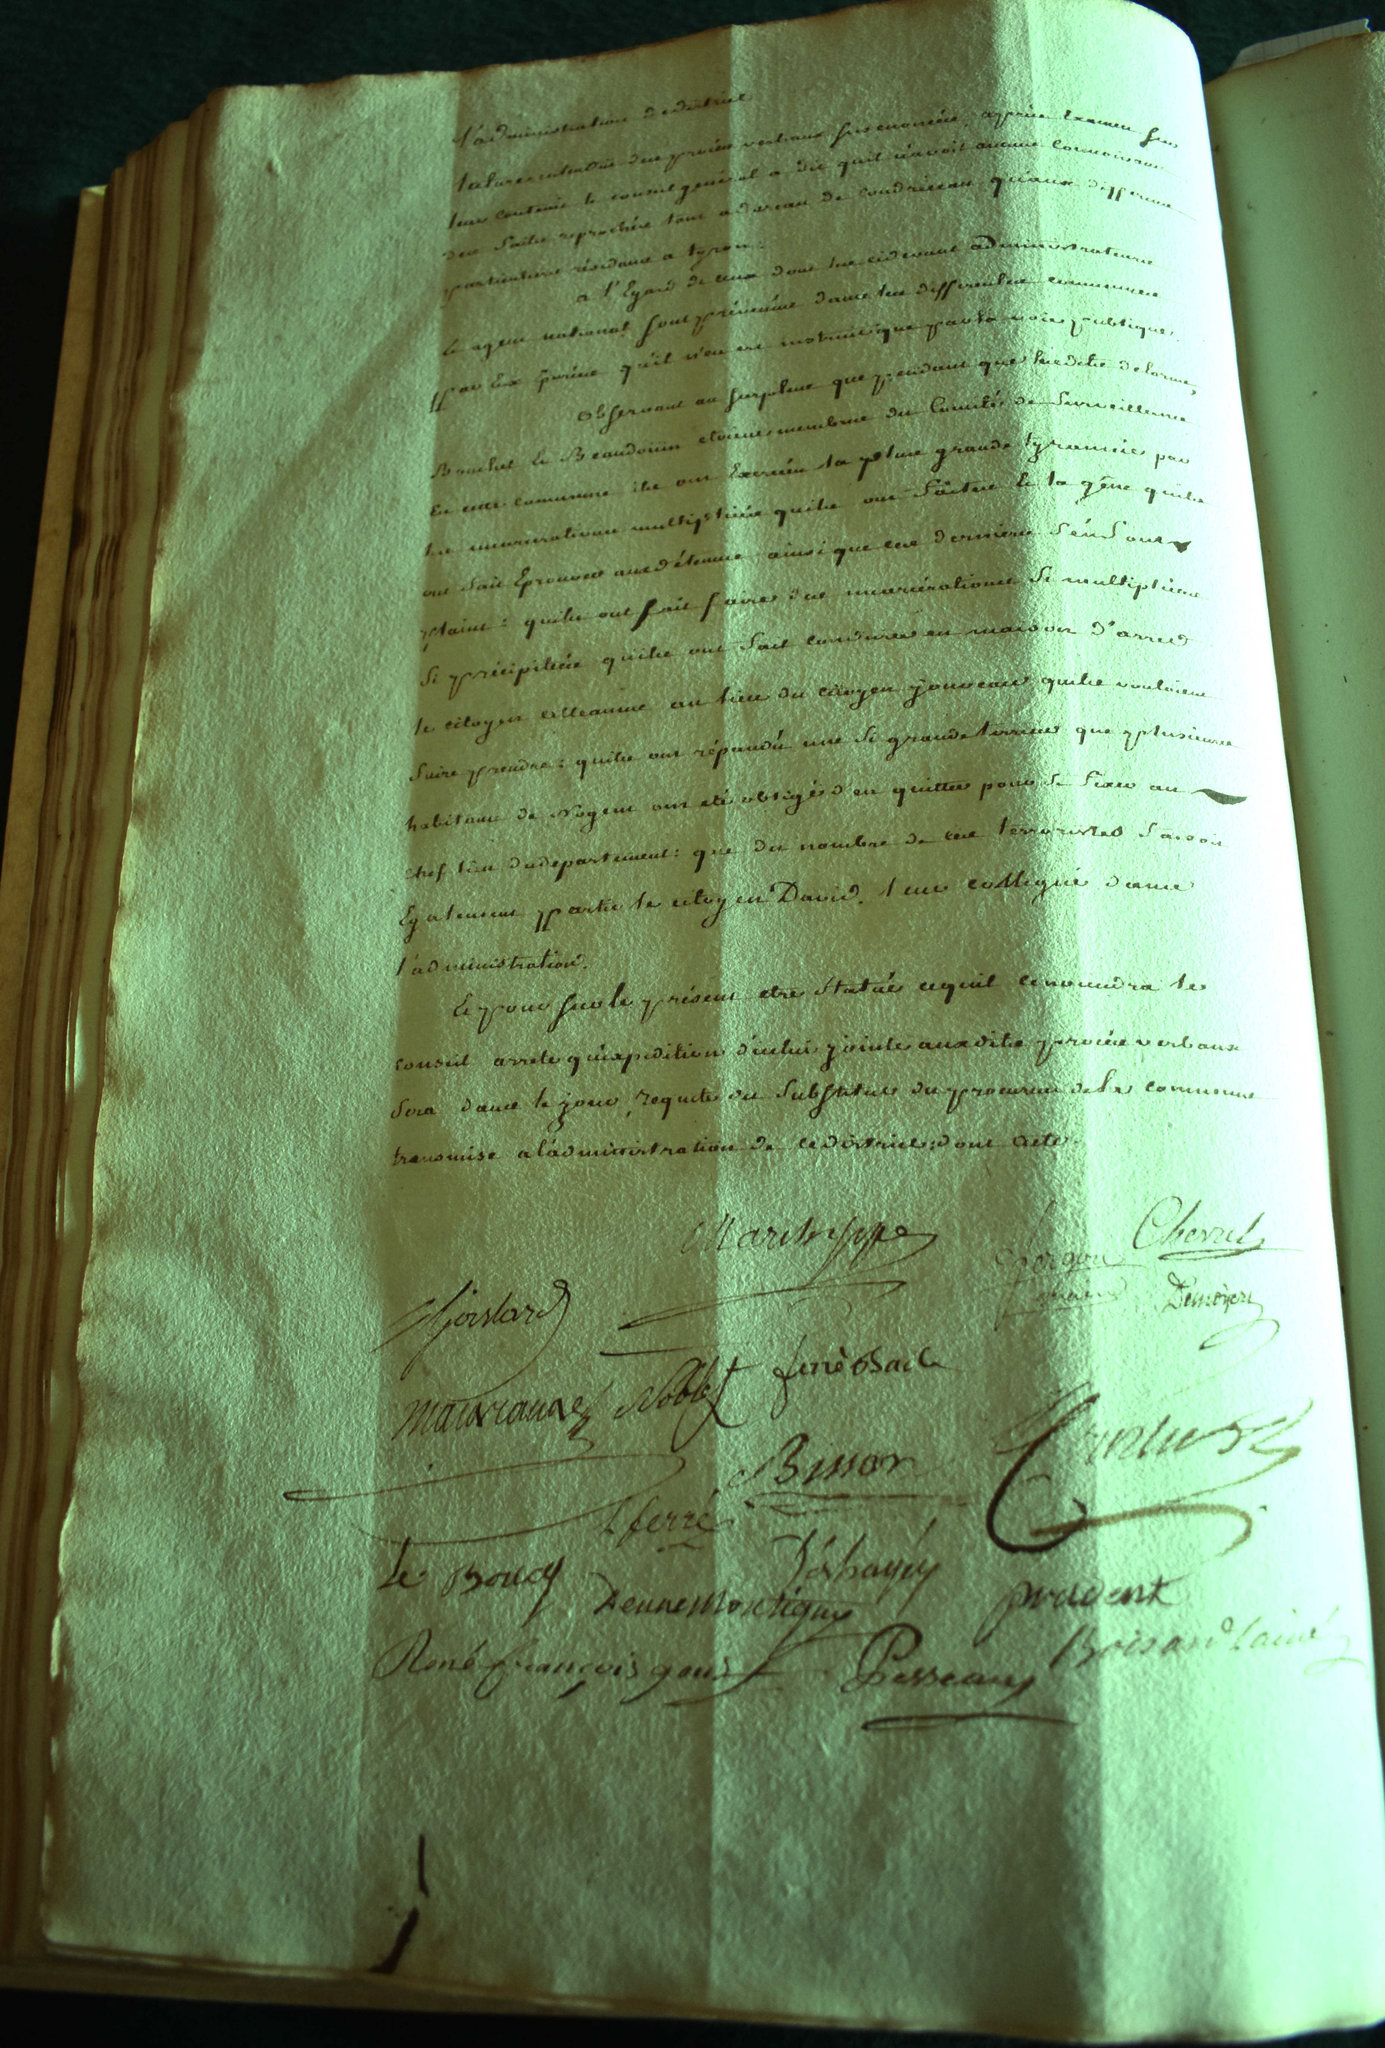 l'administration de district
lecture entendue des procès verbaux susénoncés, après Examen sur
leur contenu le conseil général a dit quil n'avoit aucune connoissance
des faits reprochés tant a dareau de condriceau, qu'aux différens
particuliers résidans a
a l'Egard de ceux dont les cidevant administrateurs
& agent national sont prévenus dans les différentes communes
par Eux qu'il n'en est instruit que par la voie publique.
observant au surplus que pendant que lesdits delorme,
Brochet & Beaudouin etoient membres du Comité de Surveillance
En cette commune ils ont Exercés la plus grande tyrannie par
les incarcérations multipliées quils ont faites & la gêne quils
ont fait Eprouver aux détenus, ainsi que ces derniers s'en sont
plaint : quils ont fait faire des incarcérations si multipliées
Si précipitées quils ont fait conduire en maison d'arrest
le citoyen alleaume au lieu du citoyen jouveau quils vouloient
faire prendre : quils ont répandü une si grande terreur que plusieurs
habitans de Nogent ont été obligés d'en quitter pour se fixer au
chef lieu du departement : que du nombre de ces terroristes faisoit
Egalement partie le citoyen David. leur collegue dans
l'administration.
Et pour sur le présent etre statué cequil conviendra le
conseil arrete qu'expédition d'icelui jointe auxdits procès verbaux
sera dans le jour, requete du Substitut du procureur de la commune
transmise a l'administration de ce district : dont acte.
Chevret
Demoyere
Noblet
ferré
Bisson
L ferré
Le Boucq
Deshayes
prudent
René françois gous
Boisard lainé